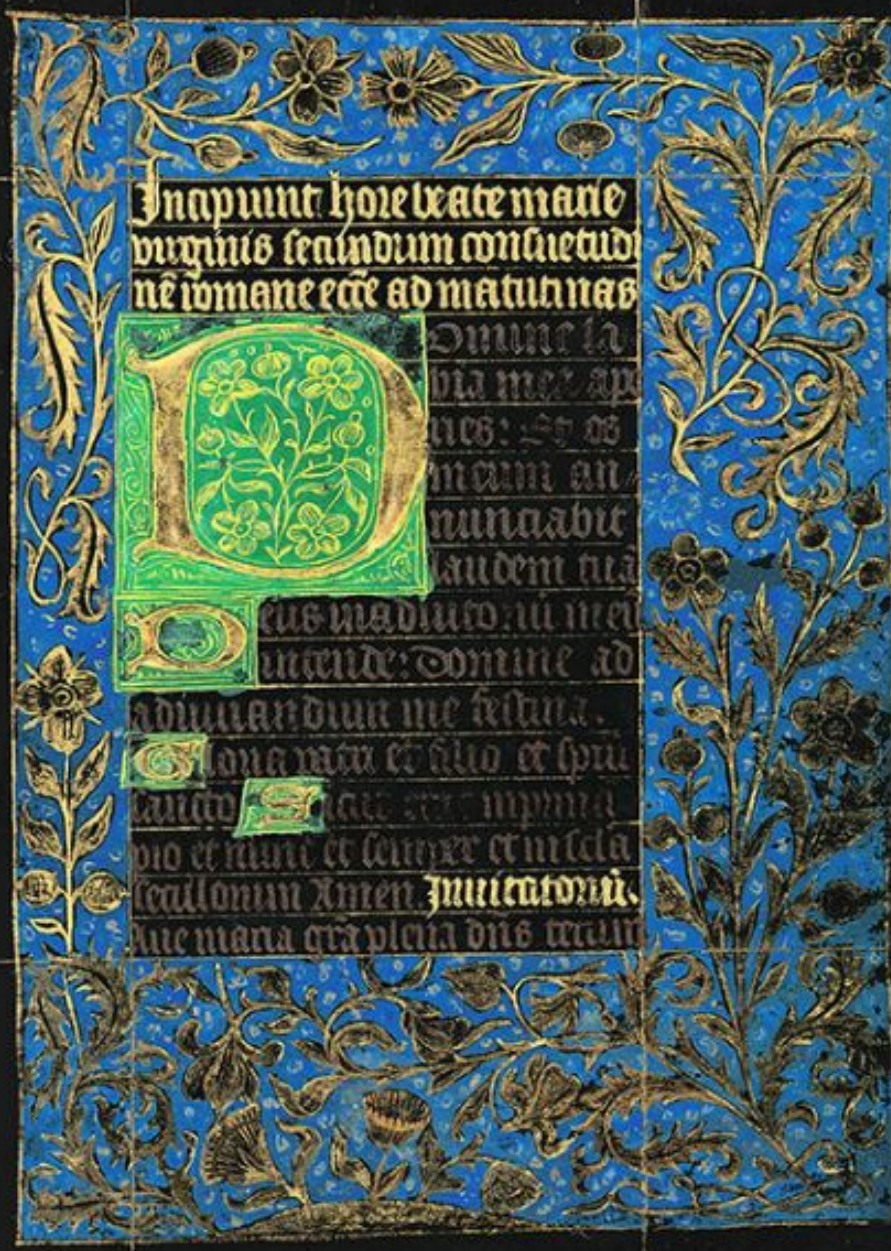 Incipiunt hore beate marie
virginis secundum consuetudi
nē romane eccē ad matutinas
Domine la
bia mea ape
ries: Et os
meum an
nunciabit
laudem tuā
Deus in adiutoriū meū
intende: Domine ad
adiuuandum me festina.
Gloria patri et filio et spūi
sancto Sicut erat in princi
pio et nunc et semper et in secla
seculorum Amen Inuitatoriū.
Aue maria grā plena dn̄s tecum